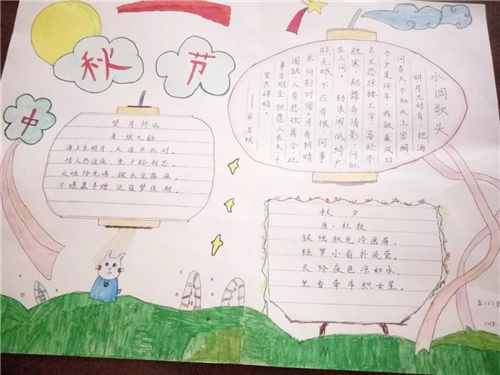 中秋节
望月怀远
唐·张九龄
海上生明月,天涯共此时。
情人怨遥夜,竟夕起相思。
灭烛怜光满,披衣觉露滋。
不堪盈手赠,还寝梦佳期。
水调歌头
明月几时有 把酒
问青天不知天上宫阙
今夕是何年 我欲乘风归
去又恐琼楼玉宇高处不
胜寒 起舞弄清影 何似
在人间 转朱阁低绮户
照无眠 不应有恨 何事
长何别时圆月有阴晴
圆缺人有悲欢离合此
事古难全但愿人长久千
里共婵娟。
——宋·苏轼
秋 夕
唐·杜牧
银烛秋光冷画屏,
轻罗小扇扑流萤。
天阶夜色凉如水,
坐看牵牛织女星。